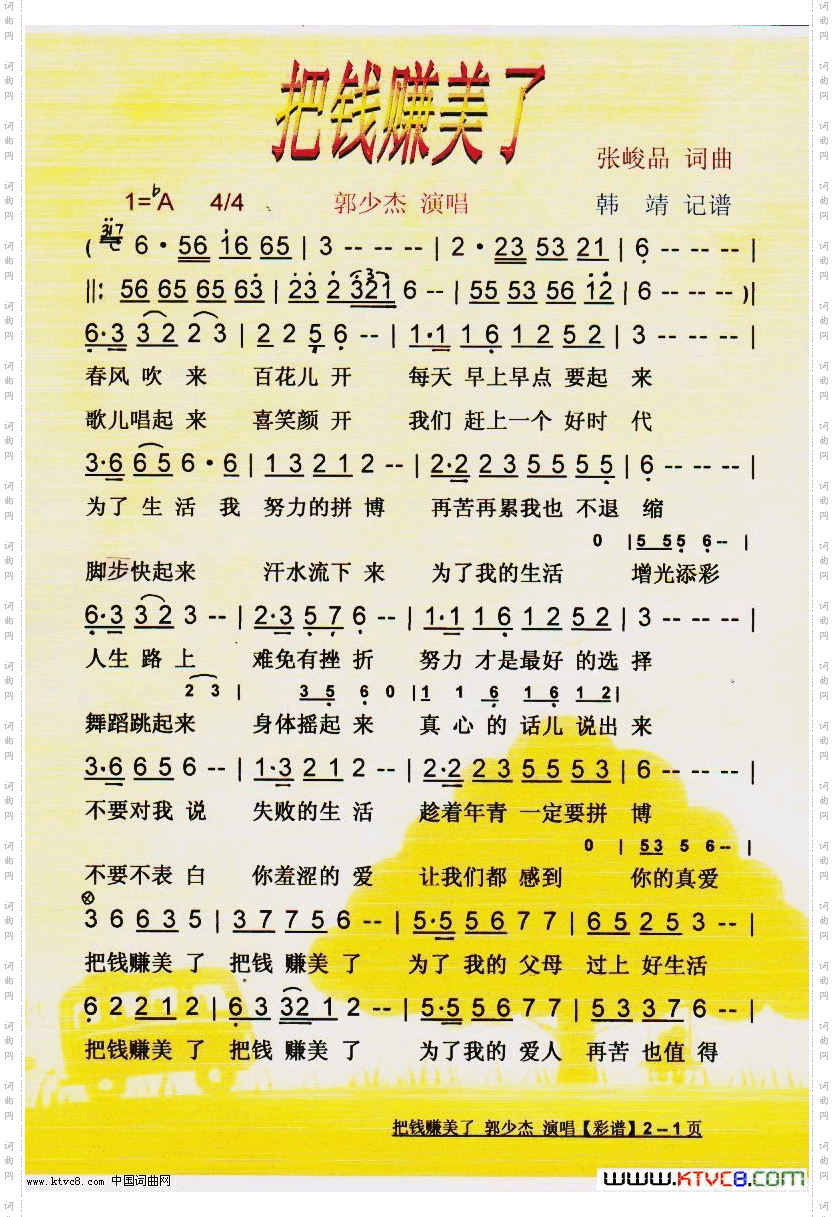 把钱赚美了
张峻品 词曲
1=♭A 4/4 郭少杰 演唱 韩 靖 记谱
( 317 6 · 56 16 65 | 3 -- -- -- | 2 · 23 53 21 | 6 -- -- -- |
||: 56 65 65 63 | 23 2 321 6 -- | 55 53 56 12 | 6 -- -- -- )|
6·3 32 23 | 2 2 5 6 -- | 1·1 16 12 52 | 3 -- -- -- |
春风 吹 来 百花儿 开 每天 早上早点 要起 来
歌儿唱起 来 喜笑颜 开 我们 赶上一个 好时 代
3·6 65 6 · 6 | 1 3 2 1 2 -- | 2·2 23 55 55 | 6 -- -- -- |
为了 生 活 我 努力的拼 博 再苦再累我也 不退 缩
0 | 5 55 6 -- |
脚步快起来 汗水流下 来 为了我的生活 增光添彩
6·3 32 3 -- | 2·3 57 6 -- | 1·1 16 12 52 | 3 -- -- -- |
人生 路 上 难免有挫 折 努力 才是最好 的选 择
2 3 | 3 5 6 0 | 1 1 6 1 6 1 2 |
舞蹈跳起来 身体摇起 来 真 心 的 话儿 说出 来
3·6 65 6 -- | 1·3 21 2 -- | 2·2 23 55 53 | 6 -- -- -- |
不要对我 说 失败的生 活 趁着年青 一定要拼 博
0 | 53 5 6 -- |
不要不表 白 你羞涩的 爱 让我们都 感到 你的真爱
3 6 63 5 | 3 7 75 6 -- | 5·5 56 7 7 | 65 25 3 -- |
把钱赚美 了 把钱 赚美 了 为了 我的 父母 过上 好生活
6 2 21 2 | 6 3 32 1 2 -- | 5·5 56 7 7 | 53 37 6 -- |
把钱赚美 了 把钱 赚美 了 为了我的 爱人 再苦 也值 得
把钱赚美了 郭少杰 演唱【彩谱】2 -- 1 页
www.ktvc8.com 中国词曲网
www.KTVC8.com